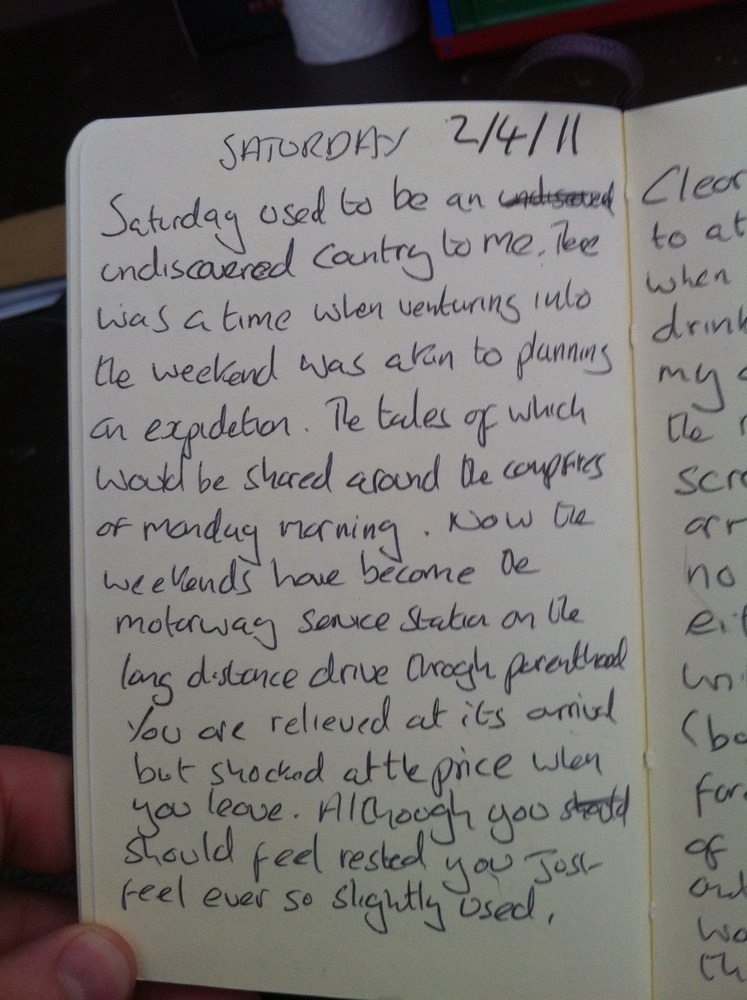 SATURDAY 2/4/11
Saturday used to be an
undiscovered Country to me. There
was a time when venturing into
the weekend was akin to planning
an expidetion. The tales of which
would be shared around the campfires
of monday morning. Now the
weekends have become the
motorway service station on the
long distance drive throogh parenthood
You are relieved at its arrival
but shocked at the price when
you leave. Although you should
should feel rested you Just
feel ever so slightly used.
Clear
to at
when
drink
my
the
scr
arr
no
eit
un
(bo
for
of
out
wo
th